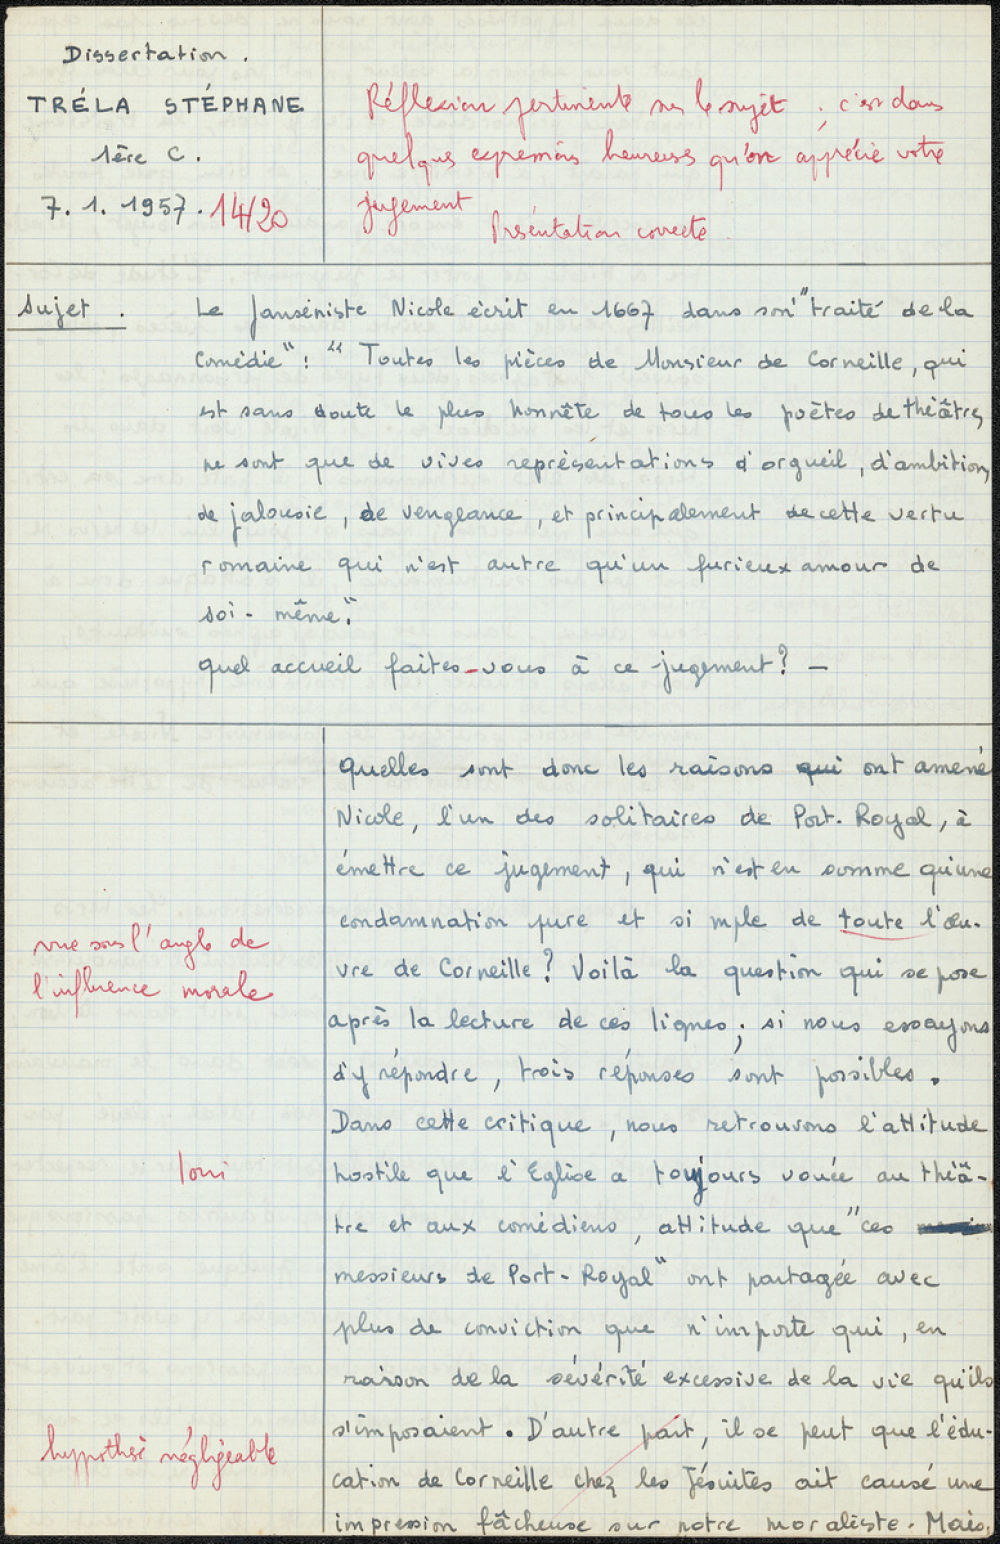 Dissertation.
TRÉLA STÉPHANE
1ère C.
7. 1. 1957. 14/20
Réflexion pertinente sur le sujet ; c'est dans
quelques expressions heureuses qu'on apprécie votre
jugement
Présentation correcte.
Sujet.
Le Janséniste Nicole écrit en 1667 dans son "traité de la
Comédie" : " Toutes les pièces de Monsieur de Corneille, qui
est sans doute le plus honnête de tous les poètes de théâtre,
ne sont que de vives représentations d'orgueil, d'ambition,
de jalousie, de vengeance, et principalement de cette vertu
romaine qui n'est autre qu'un furieux amour de
soi-même".
quel accueil faites-vous à ce jugement? —
Quelles sont donc les raisons qui ont amené
Nicole, l'un des solitaires de Port-Royal, à
émettre ce jugement, qui n'est en somme qu'une
condamnation pure et simple de toute l'œu-
vre de Corneille? Voilà la question qui se pose
après la lecture de ces lignes; si nous essayons
d'y répondre, trois réponses sont possibles.
Dans cette critique, nous retrouvons l'attitude
hostile que l'Eglise a toujours vouée au théâ-
tre et aux comédiens, attitude que "ces
messieurs de Port-Royal" ont partagée avec
plus de conviction que n'importe qui, en
raison de la sévérité excessive de la vie qu'ils
s'imposaient. D'autre part, il se peut que l'édu-
cation de Corneille chez les Jésuites ait causé une
impression fâcheuse sur notre moraliste. Mais,
vue sous l'angle de
l'influence morale
hypothèse négligeable